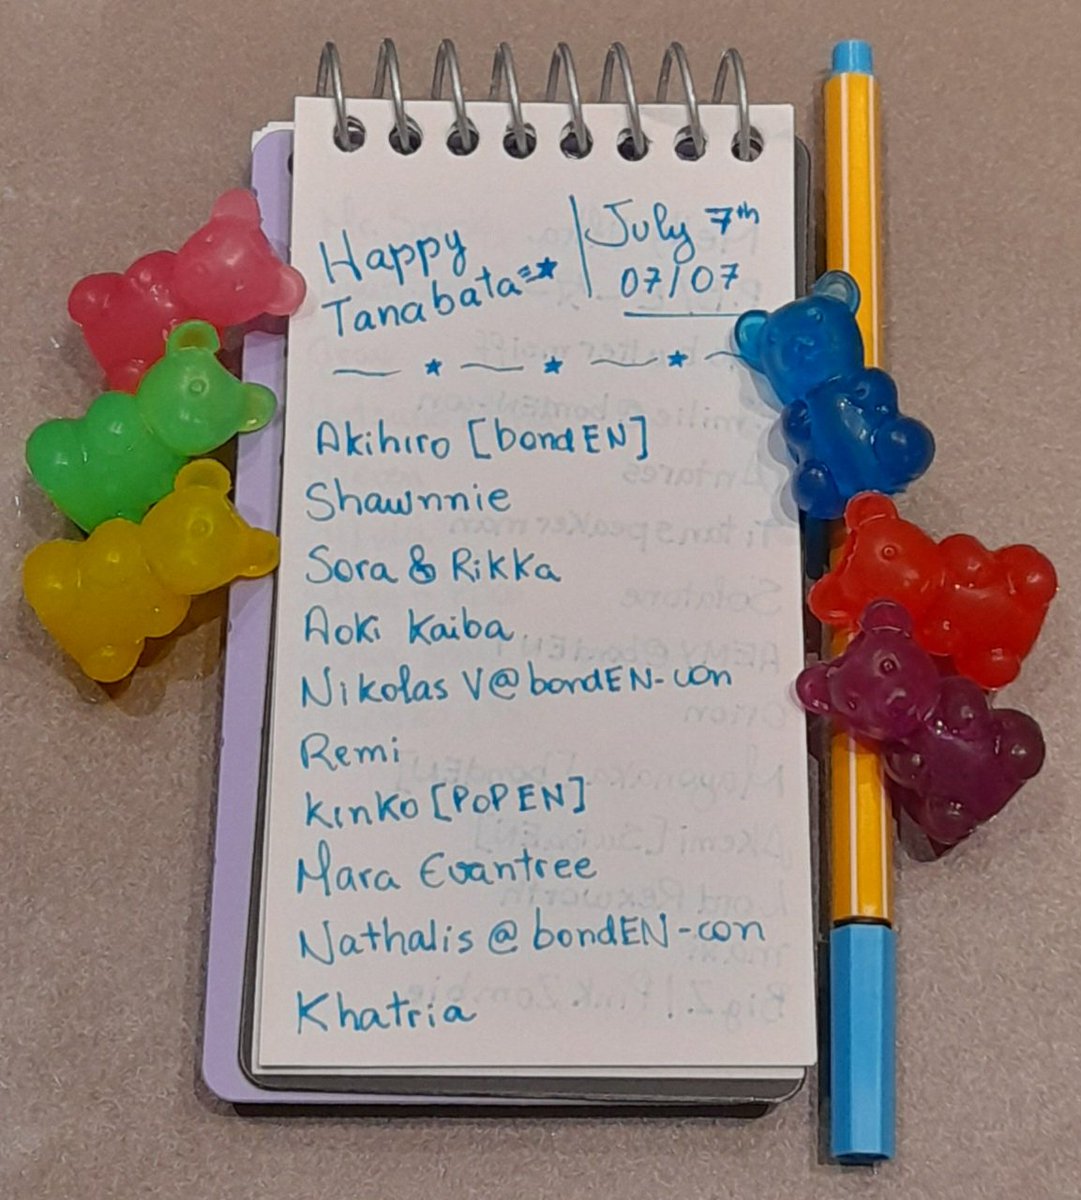 Happy
Tanabata
July 7th
07/07
Akihiro [bondEN]
Shawnnie
Sora & Rikka
Aoki Kaiba
Nikolas V@bondEN-con
Remi
Kinko [POPEN]
Mara Evantree
Nathalis @ bondEN-con
Khatria